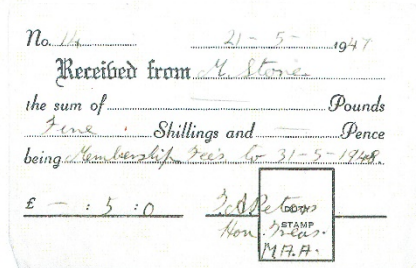 No. 14 21-5-1947
Received from M. Stone
the sum of — Pounds
Five Shillings and — Pence
being Membership Fees to 31-5-1948.
£ — : 5 : 0 Peters
DUTY
STAMP
Hon. Treas.
M.A.A.